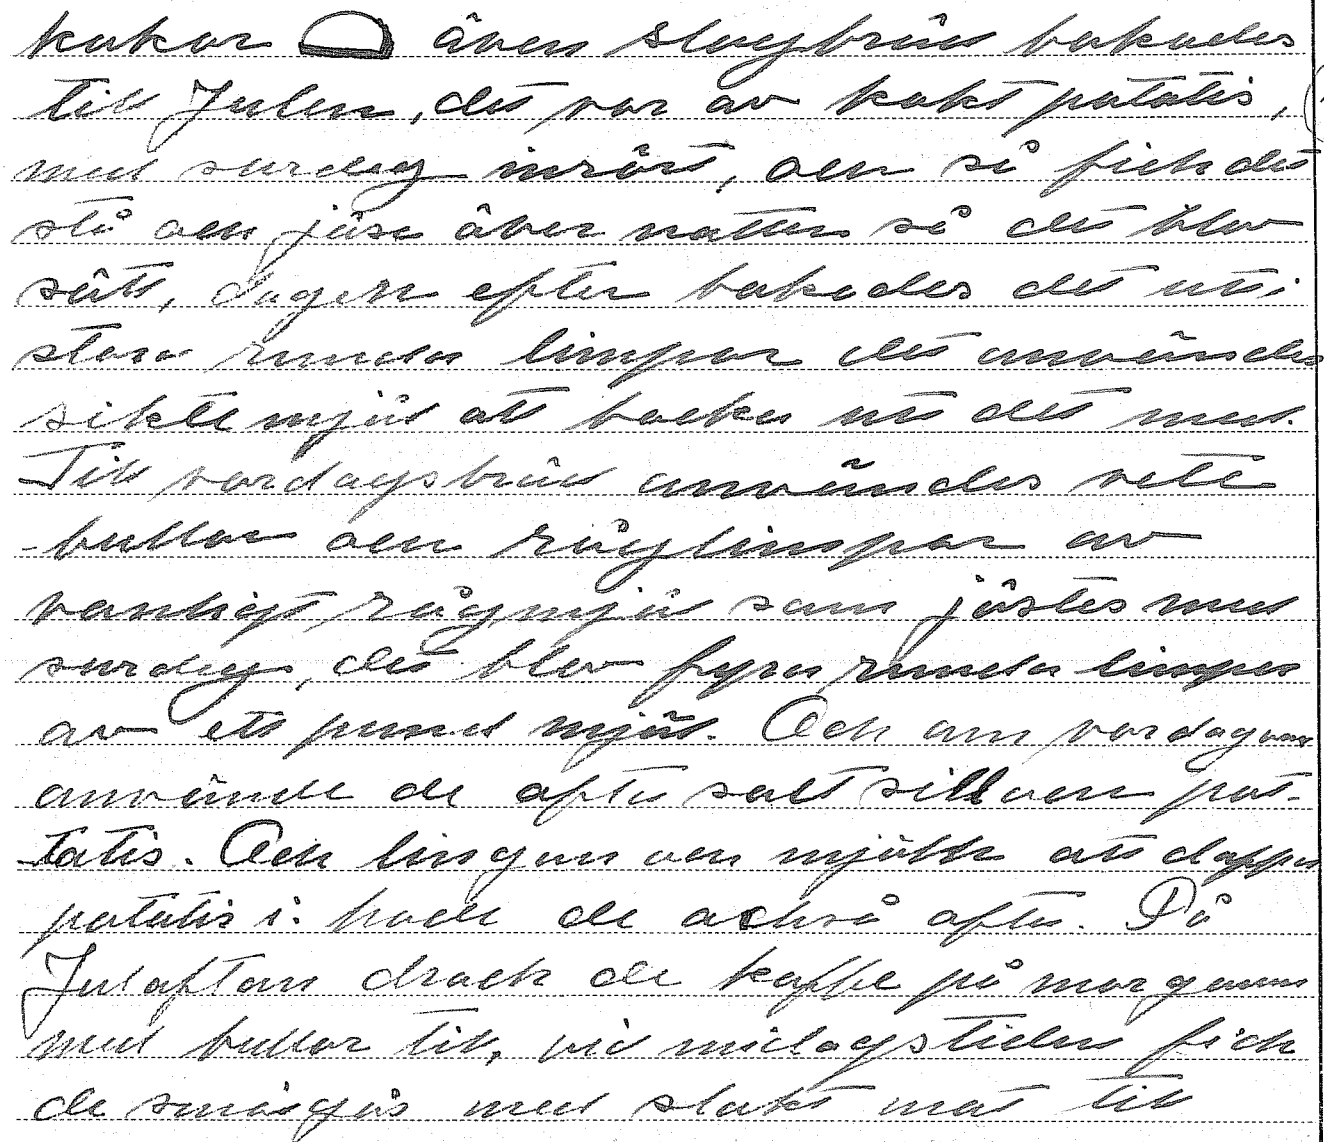 kakor även slagbröd bakades
till Julen, det var av kokt potatis,
med surdeg inrört, och så fick det
stå och jäsa över natten så det blev
sött, dagen efter bakades det ut i
stora runda limpor det användes
siktemjöl att backa ut det med.
Till vardagsbröd användes vete
-bullar och råglimpor av
vanligt rågmjöl som jästes med
surdeg, det blev fyra runda limpor
av ett pund mjöl. Och om vardagarna
använde de ofta salt sill och pot-
tatis. Och lingon och mjölk att doppa
potatis i: hade de också ofta. På
Julafton drack de kaffe på morgonen
med bullar till, vid midagstiden fick
de smörgås med slakt mat till